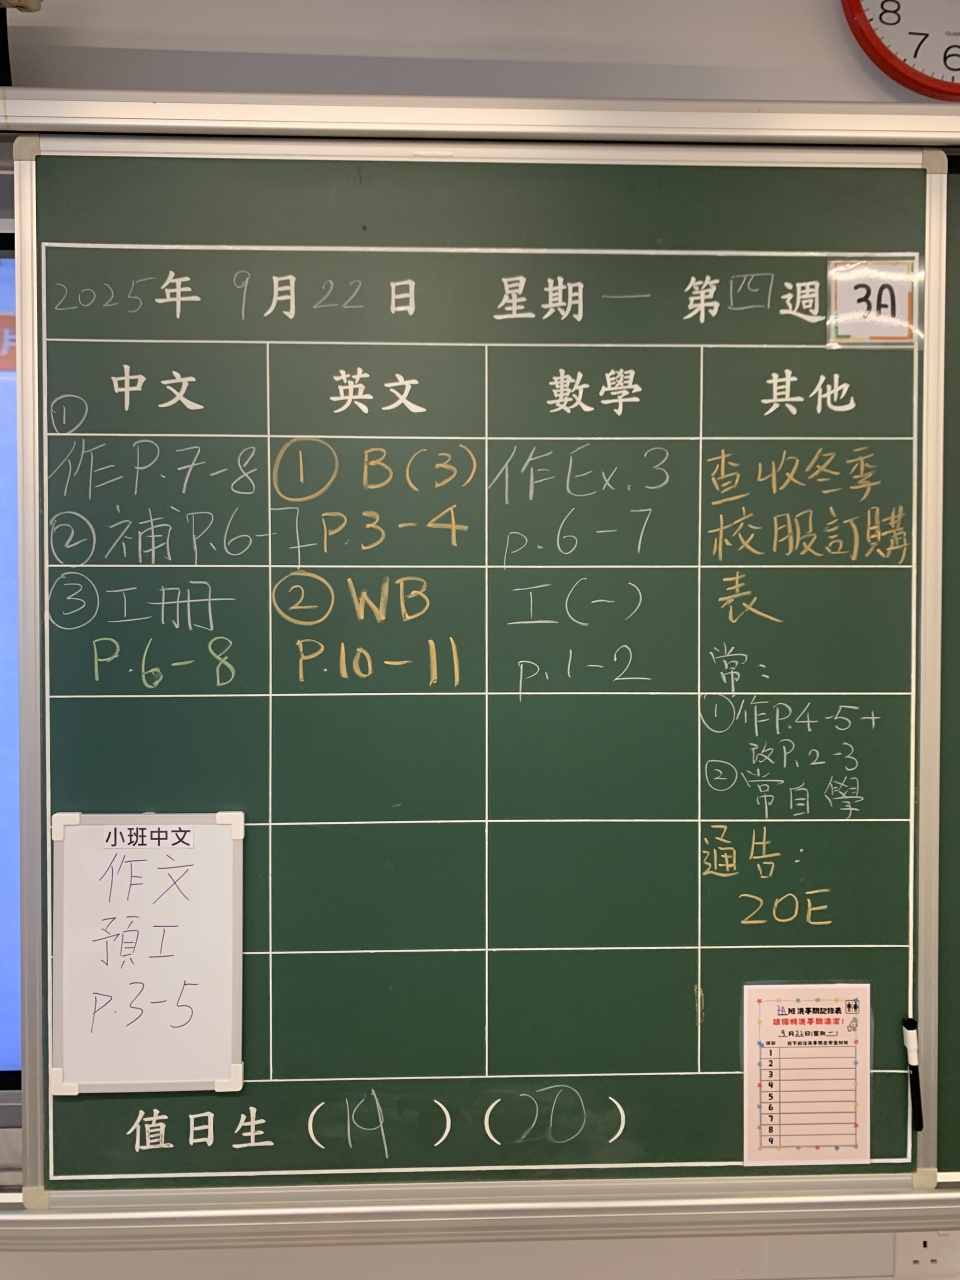 8
7
6
2025年 9月22日 星期一 第四週
3A
中文
①
作P.7-8
②補P.6-7
③工冊
P.6-8
英文
① B(3)
P.3-4
② WB
P.10-11
數學
作Ex.3
p.6-7
工(一)
p.1-2
其他
查收冬季
校服訂購
表
常:
①作P.4-5+
改P.2-3
②常自學
通告:
20E
小班中文
作文
預工
P.3-5
3A班洗手間記錄表
請保持洗手間清潔!
9月22日(星期一)
1
2
3
4
5
6
7
8
9
值日生 (19) (20)